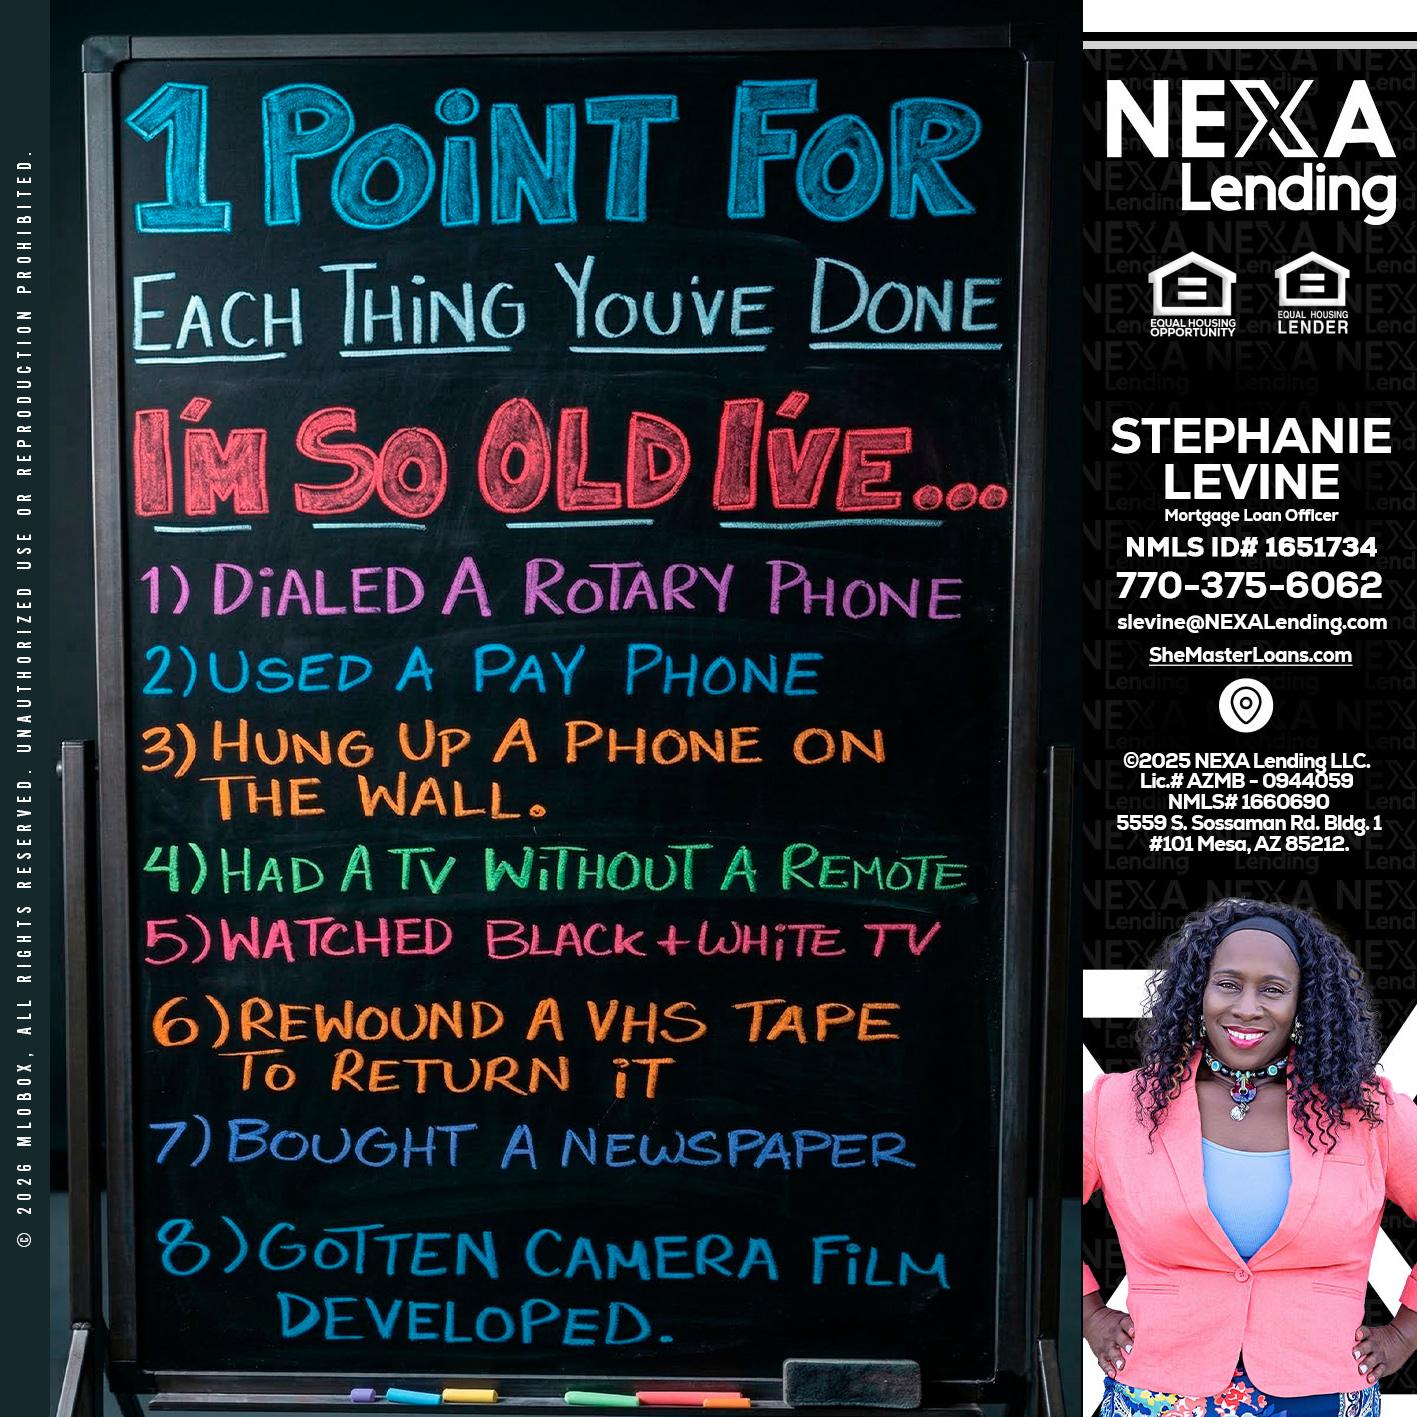 © 2026 MLOBOX, ALL RIGHTS RESERVED. UNAUTHORIZED USE OR REPRODUCTION PROHIBITED.
1 POINT FOR
EACH THING YOU'VE DONE
I'M SO OLD I'VE...
1) DIALED A ROTARY PHONE
2) USED A PAY PHONE
3) HUNG UP A PHONE ON
THE WALL.
4) HAD A TV WITHOUT A REMOTE
5) WATCHED BLACK + WHITE TV
6) REWOUND A VHS TAPE
TO RETURN IT
7) BOUGHT A NEWSPAPER
8) GOTTEN CAMERA FILM
DEVELOPED.
NEXA
Lending
EQUAL HOUSING
OPPORTUNITY
EQUAL HOUSING
LENDER
STEPHANIE
LEVINE
Mortgage Loan Officer
NMLS ID# 1651734
770-375-6062
slevine@NEXALending.com
SheMasterLoans.com
©2025 NEXA Lending LLC.
Lic.# AZMB - 0944059
NMLS# 1660690
5559 S. Sossaman Rd. Bldg. 1
#101 Mesa, AZ 85212.